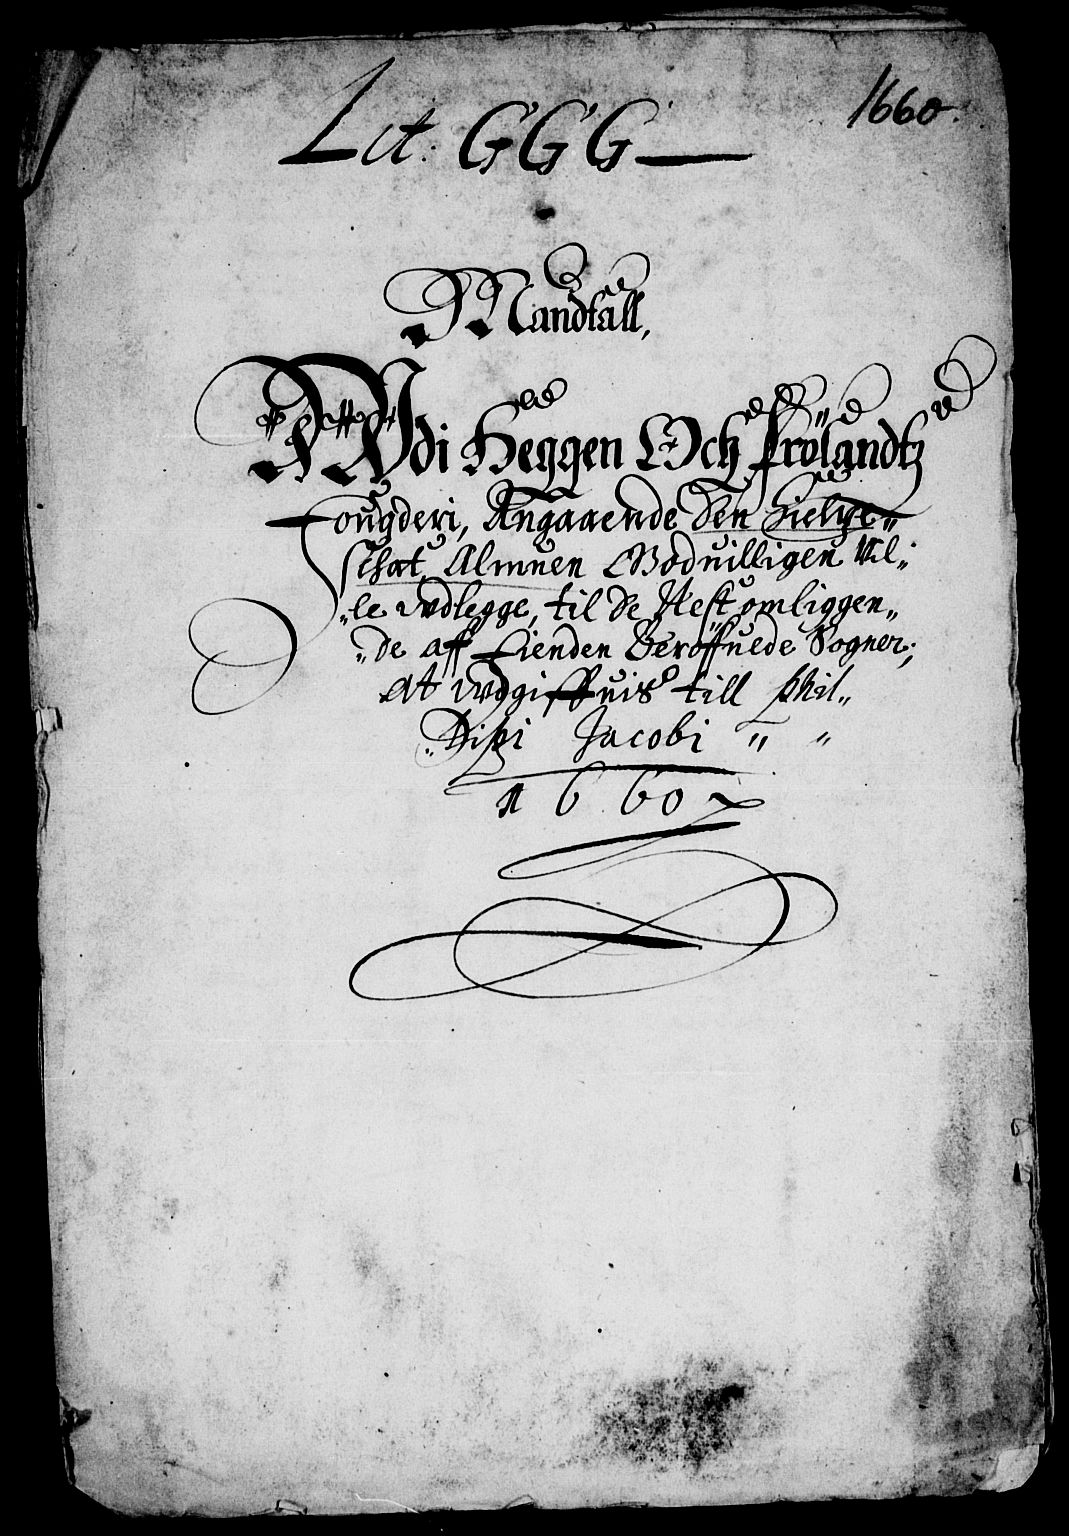 Lit: GGG
1660.
Mandtall,
Udi Heggen Och Frölandtz
Fougderi, Angaaende den Hielpe„
schat, Almuen Godvilligen vil„
„le udlegge, til de Nest omliggen„
„de aff Fienden Beröffuede Sogner,
at udgiffuis till Phil„
„Dipi Jacobi „ „
1660